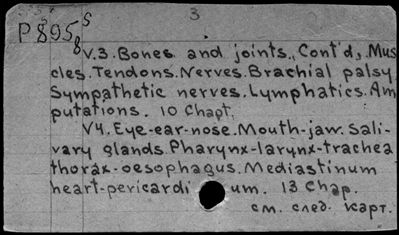 3
P895 8 S
V.3. Bones and joints., Cont'd, Mus
cles. Tendons. Nerves. Brachial palsy
Sympathetic nerves. Lymphatics. Am
putations. 10 Chapt.
V4. Eye-ear-nose. Mouth-jaw. Sali-
vary glands. Pharynx-larynx-trachea
thorax-oesophagus. Mediastinum
heart-pericardi um. 13 Chap.
см. след. карт.